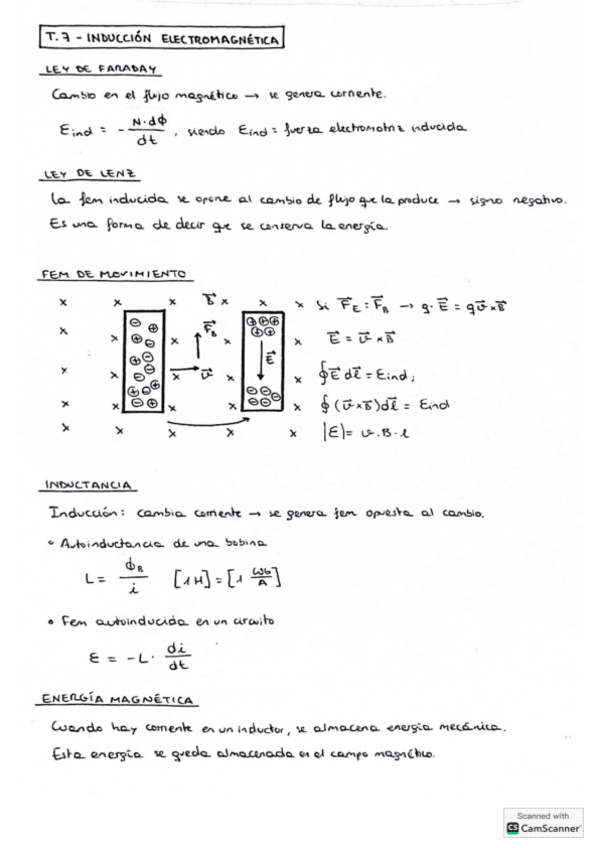 T.7 - INDUCCIÓN ELECTROMAGNÉTICA
LEY DE FARADAY
Cambio en el flujo magnético → se genera corriente.
Eind = - N·dΦ / dt , siendo Eind = fuerza electromotriz inducida
LEY DE LENZ
La fem inducida se opone al cambio de flujo que la produce → signo negativo.
Es una forma de decir que se conserva la energía.
FEM DE MOVIMIENTO
B⃗
Si F⃗E = F⃗B → q·E⃗ = qv⃗×B⃗
F⃗B
E⃗
v⃗
E⃗ = v⃗×B⃗
∮E⃗dl⃗ = Eind;
∮(v⃗×B⃗)dl⃗ = Eind
|E| = v·B·l
INDUCTANCIA
Inducción: cambia corriente → se genera fem opuesta al cambio.
• Autoinductancia de una bobina
L = ΦB / i [1H] = [1 Wb/A]
• Fem autoinducida en un circuito
ε = -L· di/dt
ENERGÍA MAGNÉTICA
Cuando hay corriente en un inductor, se almacena energía mecánica.
Esta energía se queda almacenada en el campo magnético.
Scanned with
CS CamScanner